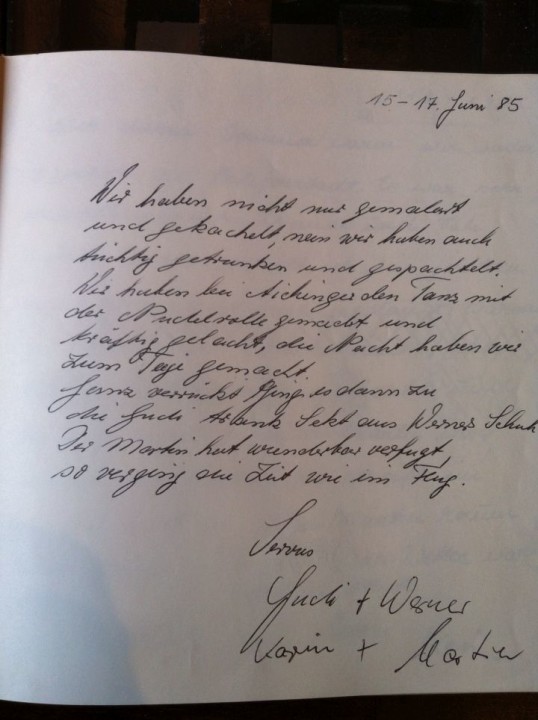 15-17. Juni 85
Wir haben nicht nur gemalert
und gekachelt, nein wir haben auch
tüchtig getrunken und gespachtelt.
Wir haben bei Aichinger den Tanz mit
der Nudelrolle gemacht und
kräftig gelacht, die Nacht haben wir
zum Tage gemacht.
Ganz verrückt ging es dann zu
die Gudi trank Sekt aus Werner Schuh
Der Martin hat wunderbar verfugt,
so verging die Zeit wie im Flug.
Servus
Gudi + Werner
Karin + Martin